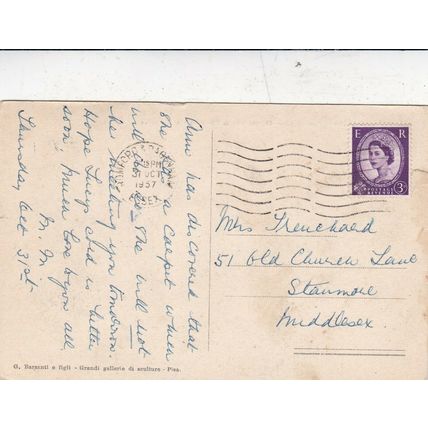 Ann has discovered that
she has a carpet which
will do so she will not
be meeting you tomorrow.
Hope Lucy's cold is better
soon. Much love to you all,
M. M.
Thursday Oct 31st
5 15 PM
31 OCT
1957
E R
POSTAGE
REVENUE
3D
Mrs Trenchard
51 Old Church Lane
Stanmore
Middlesex.
G. Barsanti e figli - Grandi gallerie di sculture - Pisa.